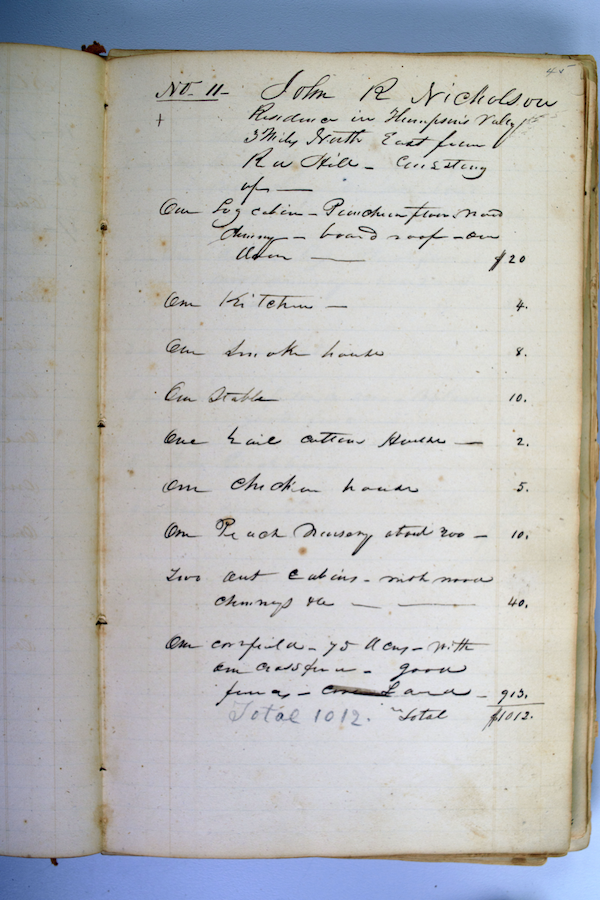 45
No. 11- John R Nicholson
Residence in Thompson's Valley
3 Miles North East from
Hill - Consisting
of -
One Log cabin - Puncheon floor wood
chimny - board roof - one
door - $20
One Kitchen - 4.
One Smoke house 8.
One Stable 10.
One Rail cotton House - 2.
One Chicken house 5.
One Peach Nursery about 200 - 10.
Two out Cabins - with wood
chimnys &c - - 40.
One cornfield - 75 Acres - with
one cross fence - good
fences - Land - 913.
Total 1012. " Total $1012.